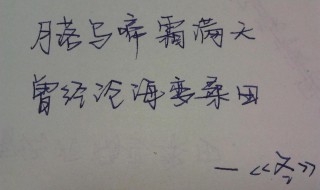 月落乌啼霜满天
曾经沧海变桑田
—《冬》